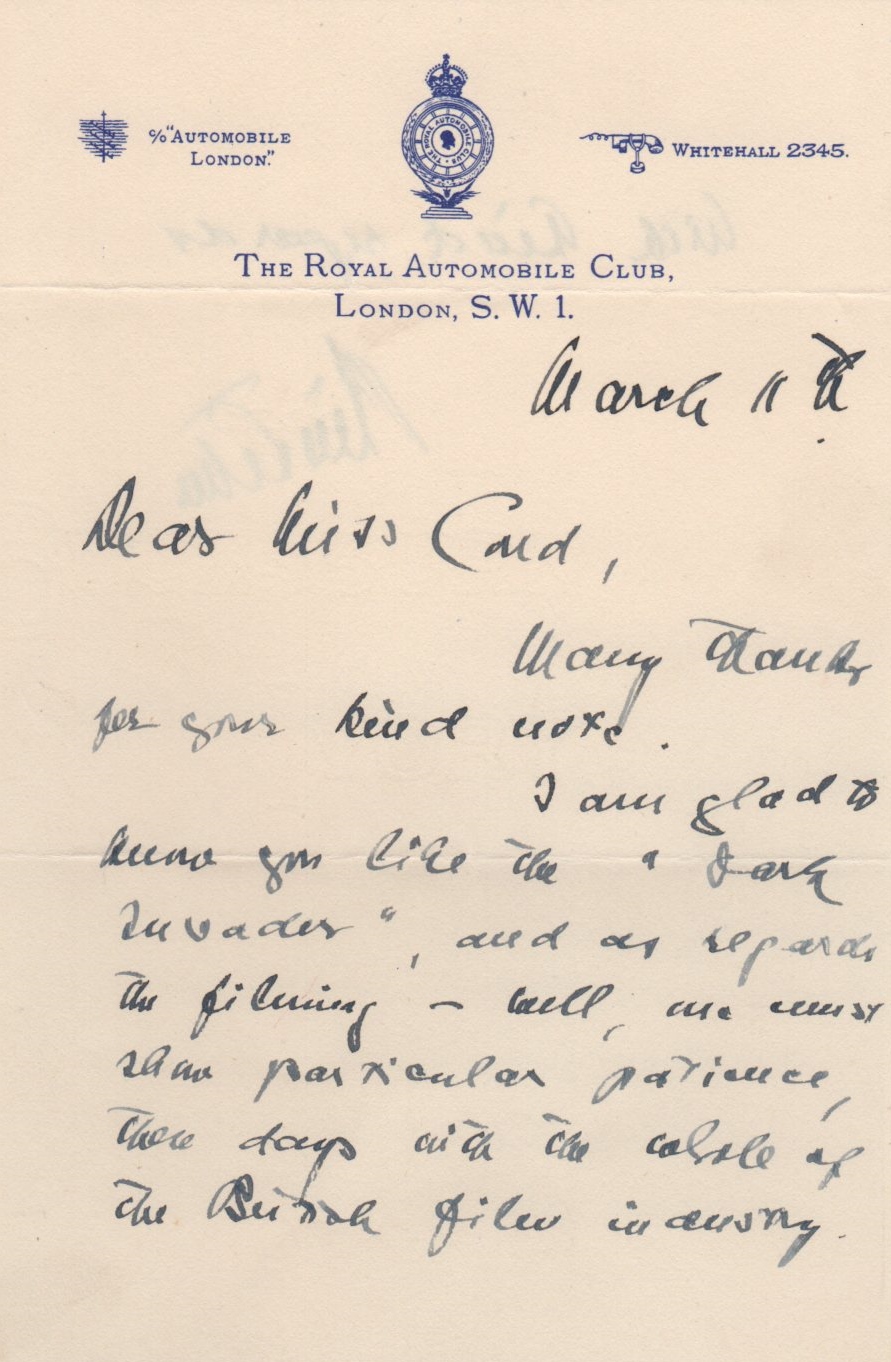 ℅ "AUTOMOBILE
LONDON."
THE ROYAL AUTOMOBILE CLUB
WHITEHALL 2345.
THE ROYAL AUTOMOBILE CLUB,
LONDON, S. W. 1.
March 11th
Dear Miss Cord,
Many thanks
for your kind note.
I am glad to
know you like the "Dark
Invader", and as regards
the filming – well, one must
show particular patience,
these days with the whole of
the British film industry.
With kind regards